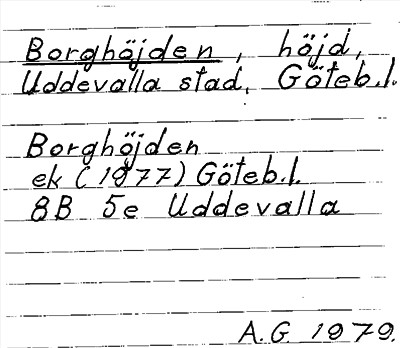 Borghöjden, höjd,
Uddevalla stad, Göteb.l.
Borghöjden
ek (1977) Göteb.l.
8B 5e Uddevalla
A.G. 1979.